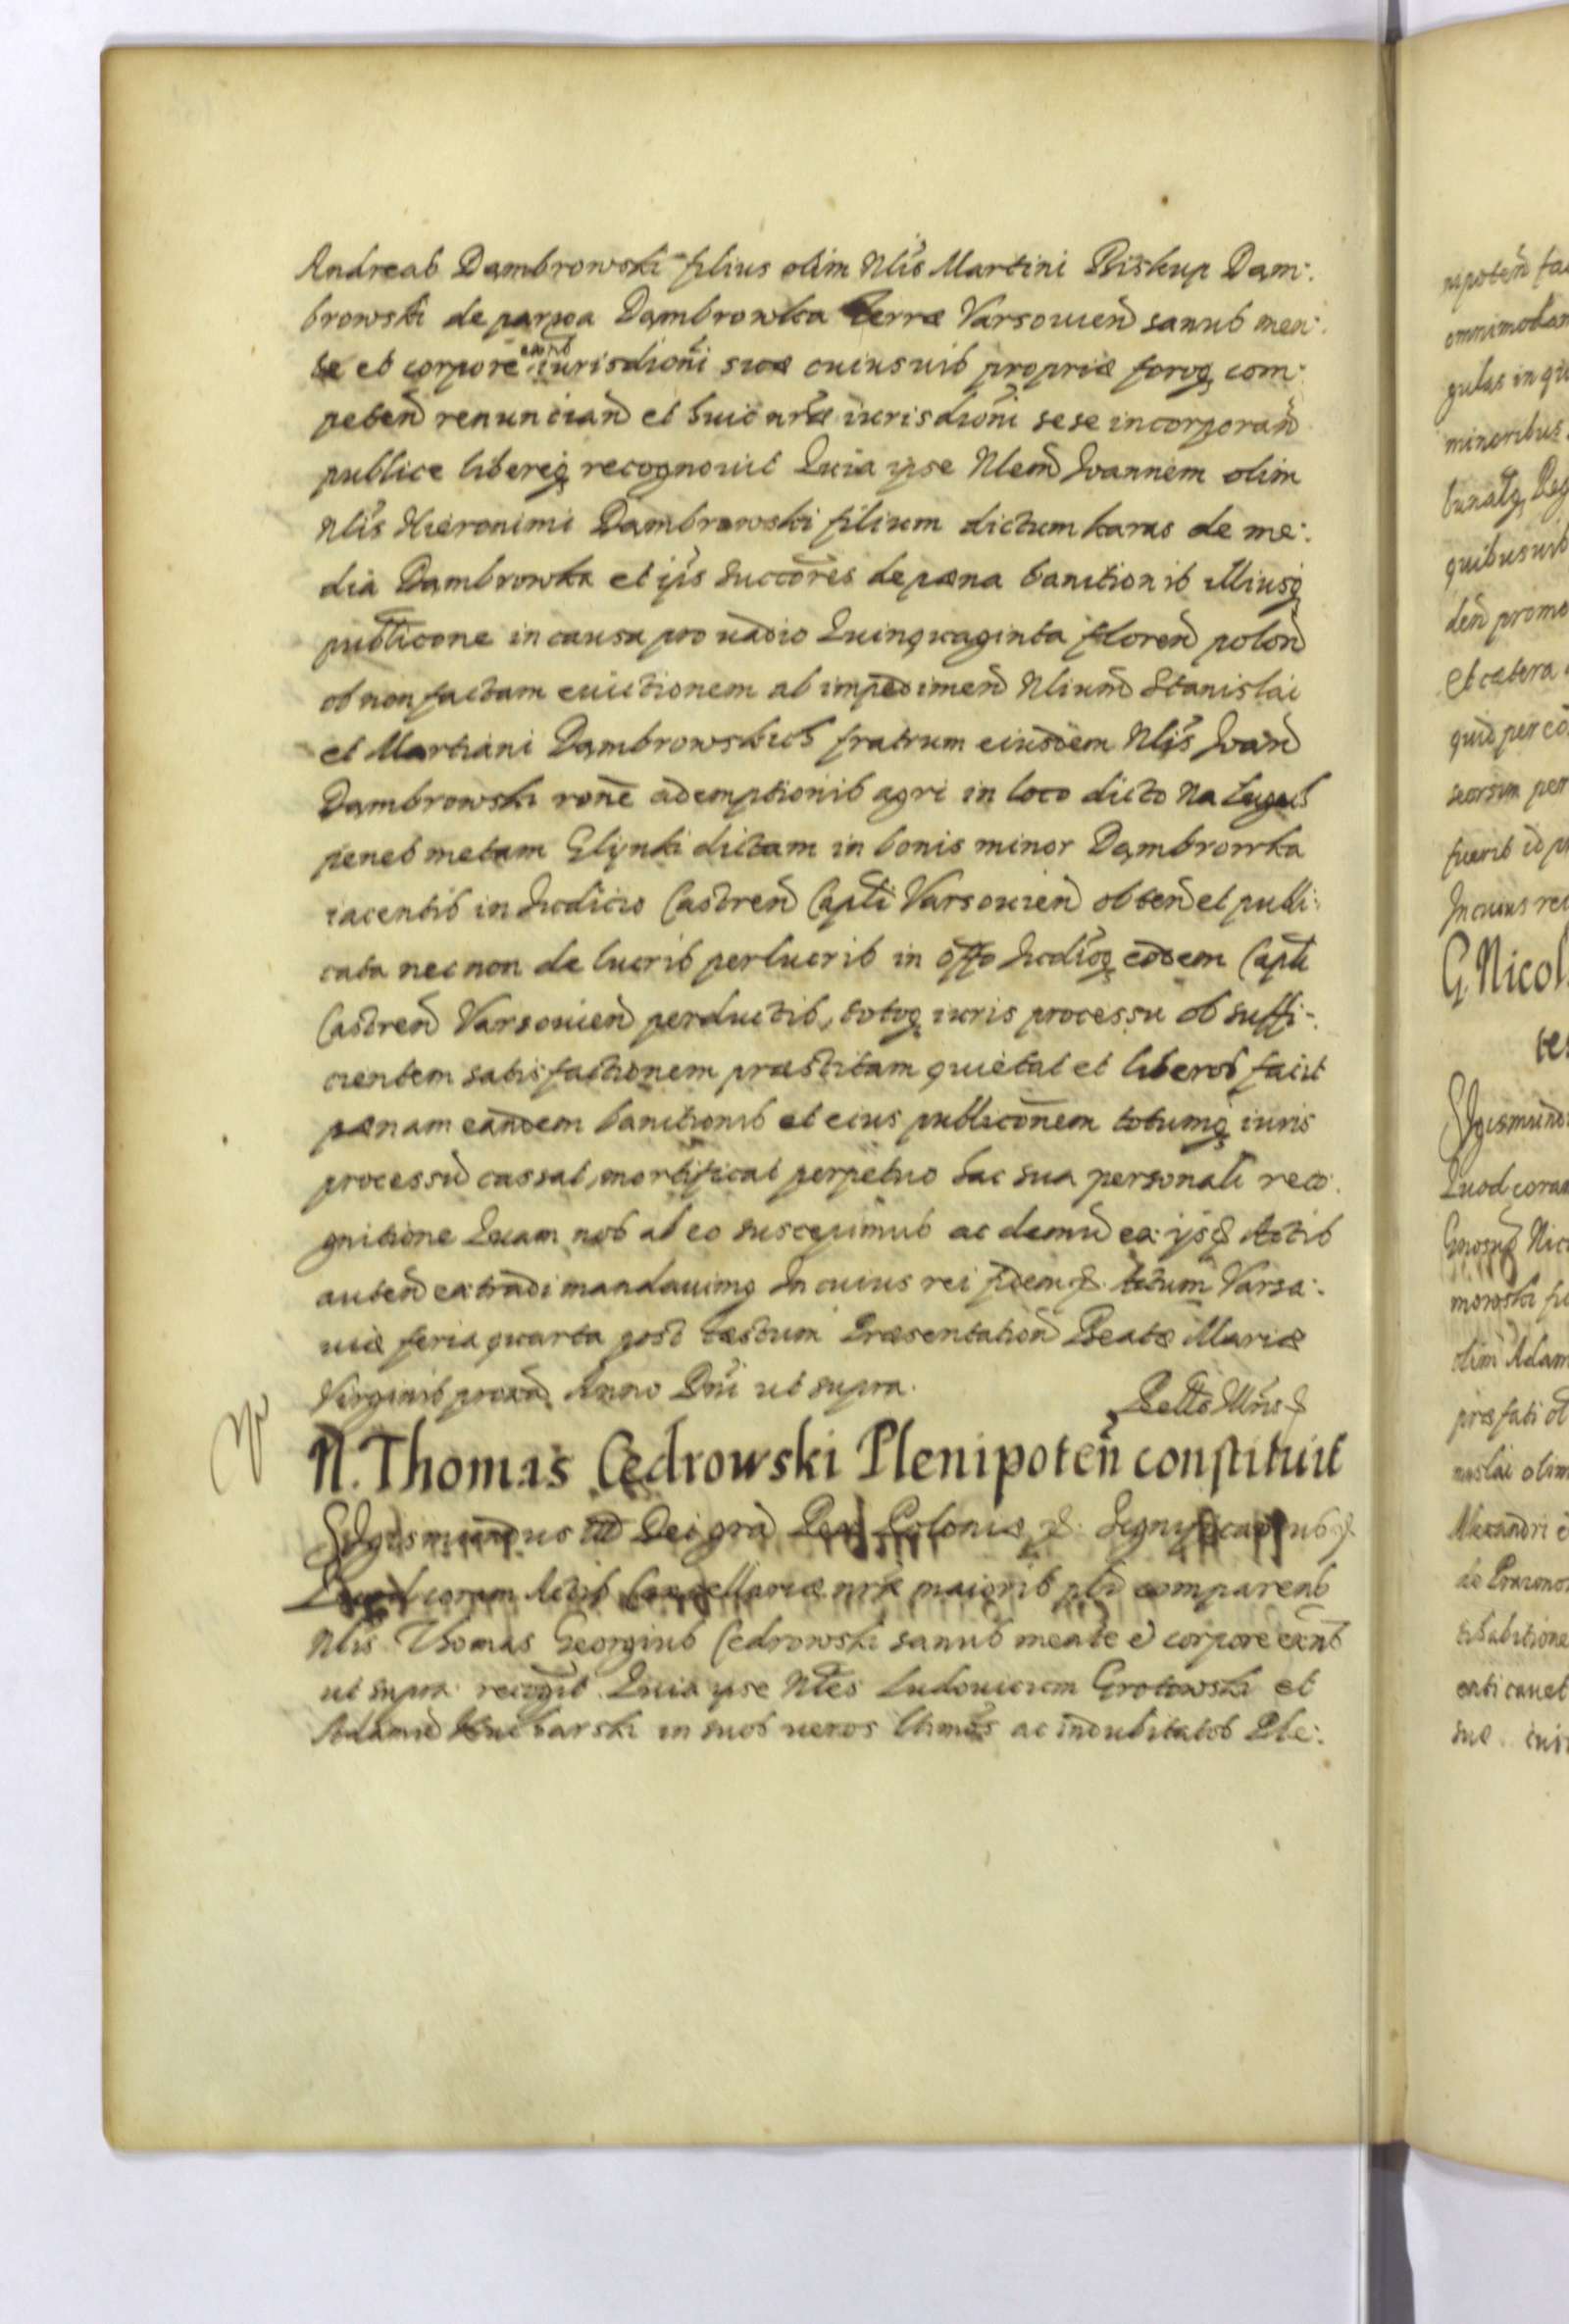 Andreas Dąmbrowski filius olim Nlis Martini Biskup Dąm:
browski de parva Dąmbrowka Terræ Varsouien sanus men:
te et corpore exns iurisdioni suæ cuiusuis propriæ foroq com:
peten renuncian et huic nræ iurisdioni sese incorporan
publice libereq recognouit Quia ipse Nlem Joannem olim
Nlis Hieronimi Dąmbrowski filium dictum karas de me:
dia Dąmbrowka et ips Succores de pæna banitionis illiusq
publicone in causa pro uadio Quinquaginta floren polon
ob non factam euictionem ab impedimen Nlium Stanislai
et Martiani Dąmbrowskich fratrum eiusdem Nlis Joan
Dąmbrowski rone ademptionis agri in loco dicto Na Lugach
penes metam Glinki dictam in bonis minor Dąmbrowka
iacentis in Judicio Castren Capli Varsouien obten et publi:
cata nec non de lucris perlucris in offo Judioq eodem Capli
Castren Varsouien perductis, totoq iuris processu ob suffi:
cientem satisfactionem præstitam quietat et liberos facit
pænam eandem banitionis et eius publiconem totumq iuris
processu cassat, mortificat perpetuo hac sua personali reco:
gnitione Quam nos ab eo suscepimus ac demu ex ijsd Actis
auten extradi mandauimq In cuius rei fidem &. Actum Varsa:
uiæ feria quarta post festum Præsentation Beatæ Mariæ
Virginis proxa Anno Dni ut supra.
N. Thomas Cedrowski Plenipoten constituit
Sigismundus III Dei gra Rex Poloniæ &. Significamus &
Quod coram Actis Cancellariæ nræ maioris pti comparens
Nlis Thomas Georgius Cedrowski sanus mente e corpore exns
ut supra recogit Quia ipse Nles Ludouicum Grotowski et
Adamu Kucharski in suos ueros ltimos ac indubitatos Ple: